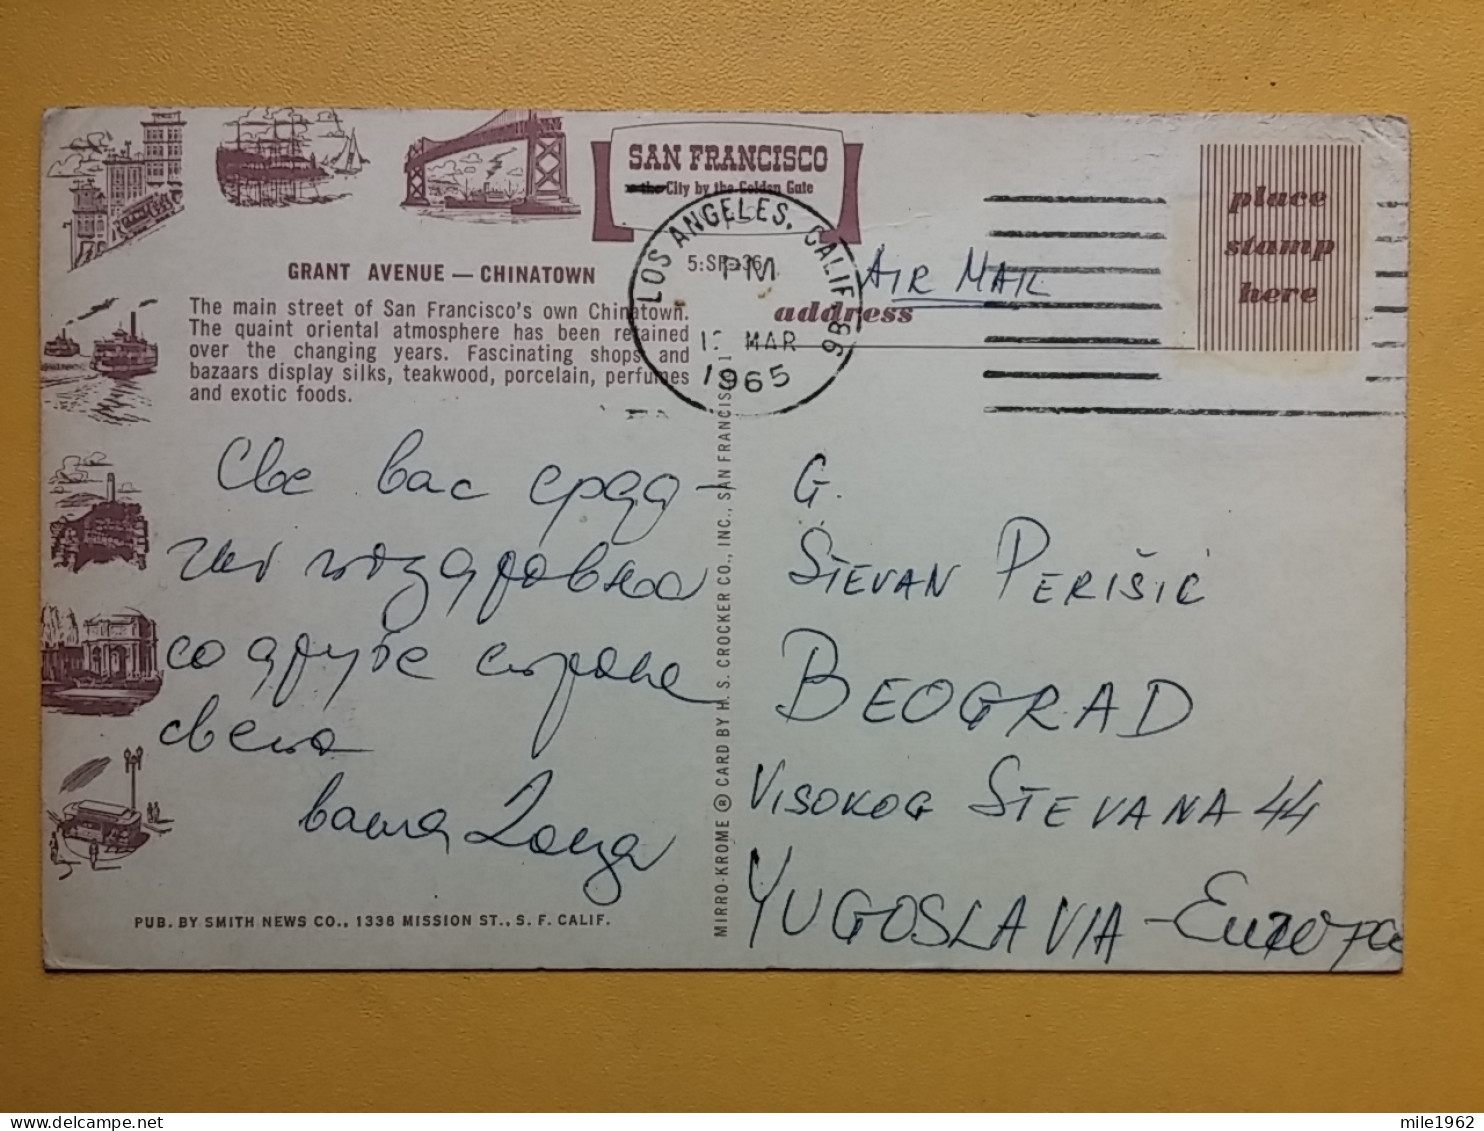 SAN FRANCISCO
the City by the Golden Gate
GRANT AVENUE — CHINATOWN
The main street of San Francisco's own Chinatown.
The quaint oriental atmosphere has been retained
over the changing years. Fascinating shops and
bazaars display silks, teakwood, porcelain, perfumes
and exotic foods.
LOS ANGELES, CALIF
PM
MAR
1965
AIR MAIL
address
place
stamp
here
Све вас срда-
чно поздравља
са друге стране
света
ваша
G.
STEVAN PERIŠIĆ
BEOGRAD
VISOKOG STEVANA 44
YUGOSLAVIA - Europa
PUB. BY SMITH NEWS CO., 1336 MISSION ST., S. F. CALIF.
MIRRO-KROME ® CARD BY H. S. CROCKER CO., INC., SAN FRANCISCO
mile1962